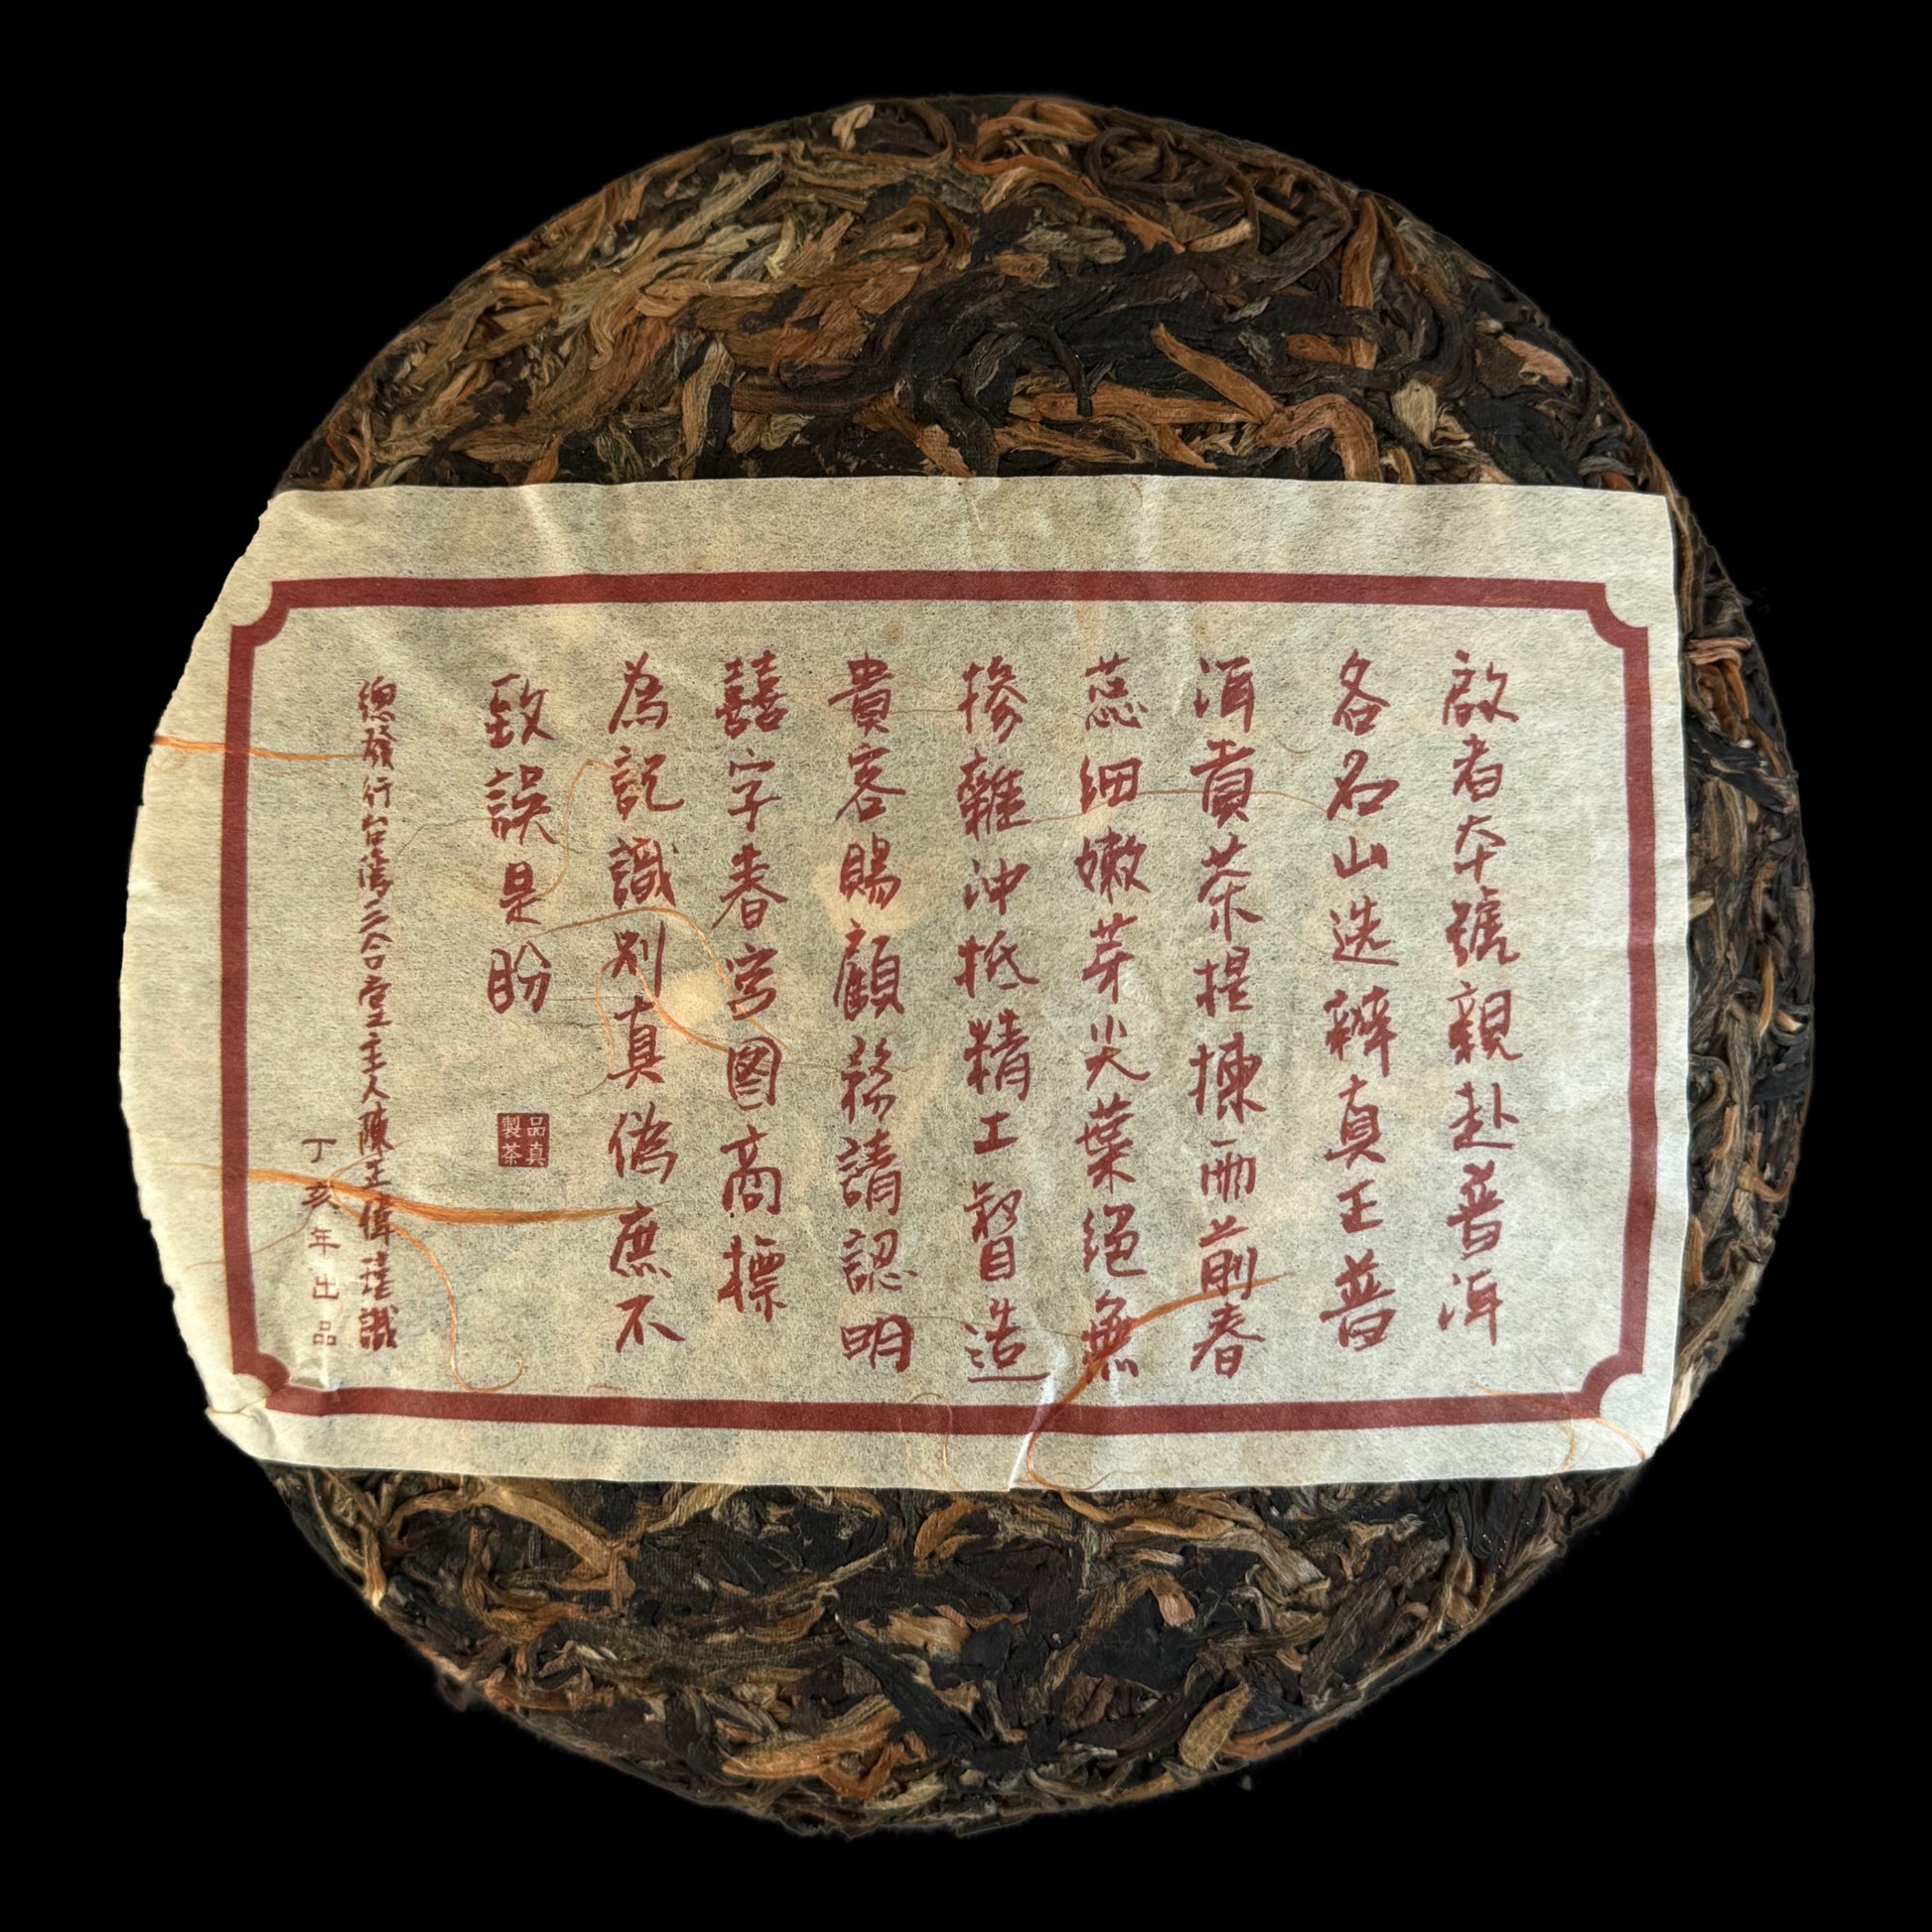 啟者本號親赴普洱
各名山选辨真正普
洱貢茶提揀雨前春
蕊細嫩芽尖葉絕無
摻雜沖抵精工督造
貴客賜顧務請認明
囍字春宮图商標
為記識別真偽庶不
致誤是盼
品真製茶
總發行台灣三合堂主人陳正偉謹識
丁亥年出品